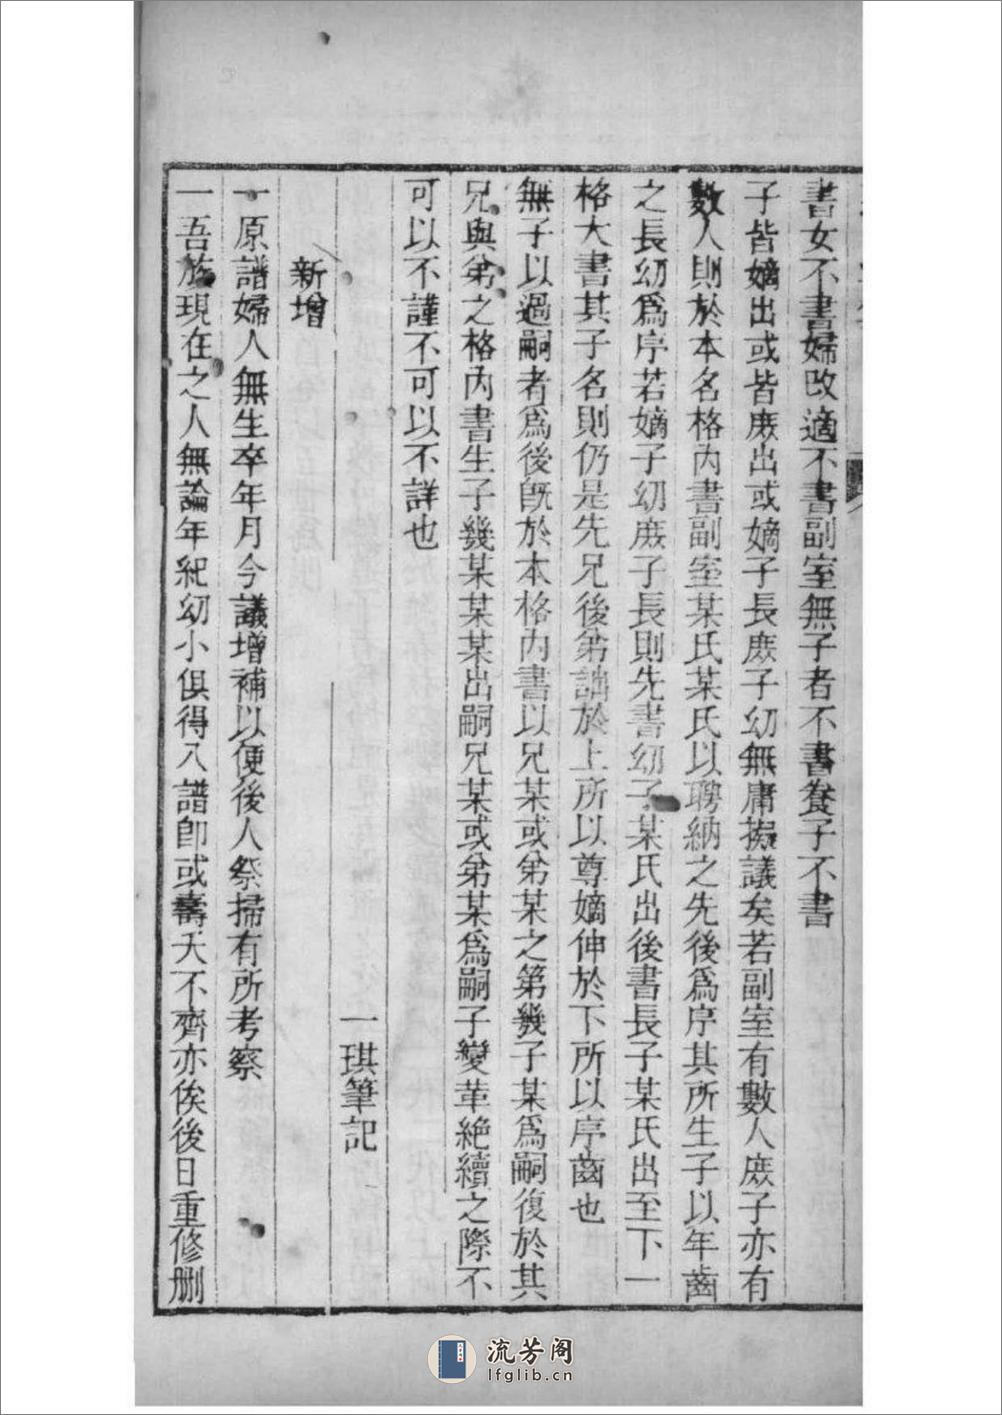 書女不書婦改適不書副室無子者不書養子不書
子皆嫡出或皆庶出或嫡子長庶子幼無庸擬議矣若副室有數人庶子亦有
數人則於本名格內書副室某氏某氏以聘納之先後爲序其所生子以年齒
之長幼爲序若嫡子幼庶子長則先書幼子某氏出後書長子某氏出至下一
格大書其子名則仍是先兄後弟詘於上所以尊嫡伸於下所以序齒也
無子以過嗣者爲後旣於本格內書以兄某或弟某之第幾子某爲嗣復於其
兄與弟之格內書生子幾某某某出嗣兄某或弟某爲嗣子變革絶續之際不
可以不謹不可以不詳也
一琪筆記
新增
一原譜婦人無生卒年月今議增補以便後人祭掃有所考察
一吾族現在之人無論年紀幼小俱得入譜卽或壽夭不齊亦俟後日重修刪
流芳阁
lfglib.cn